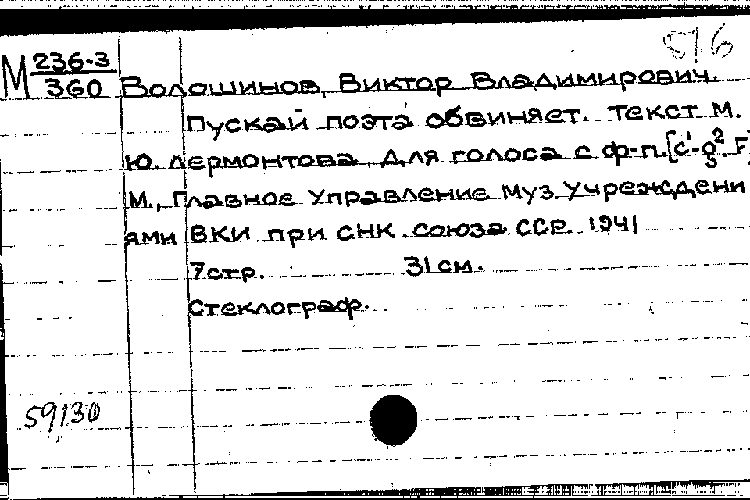 М 236-3
360
516
Волошинов, Виктор Владимирович.
Пускай поэта обвиняет. Текст М.
Ю. Лермонтова. Для голоса с ф-п. [c¹-g². F]
М., Главное Управление муз. учреждени
ями ВКИ при СНК Союза ССР. 1941
7 стр. 31 см.
Стеклограф.
59130